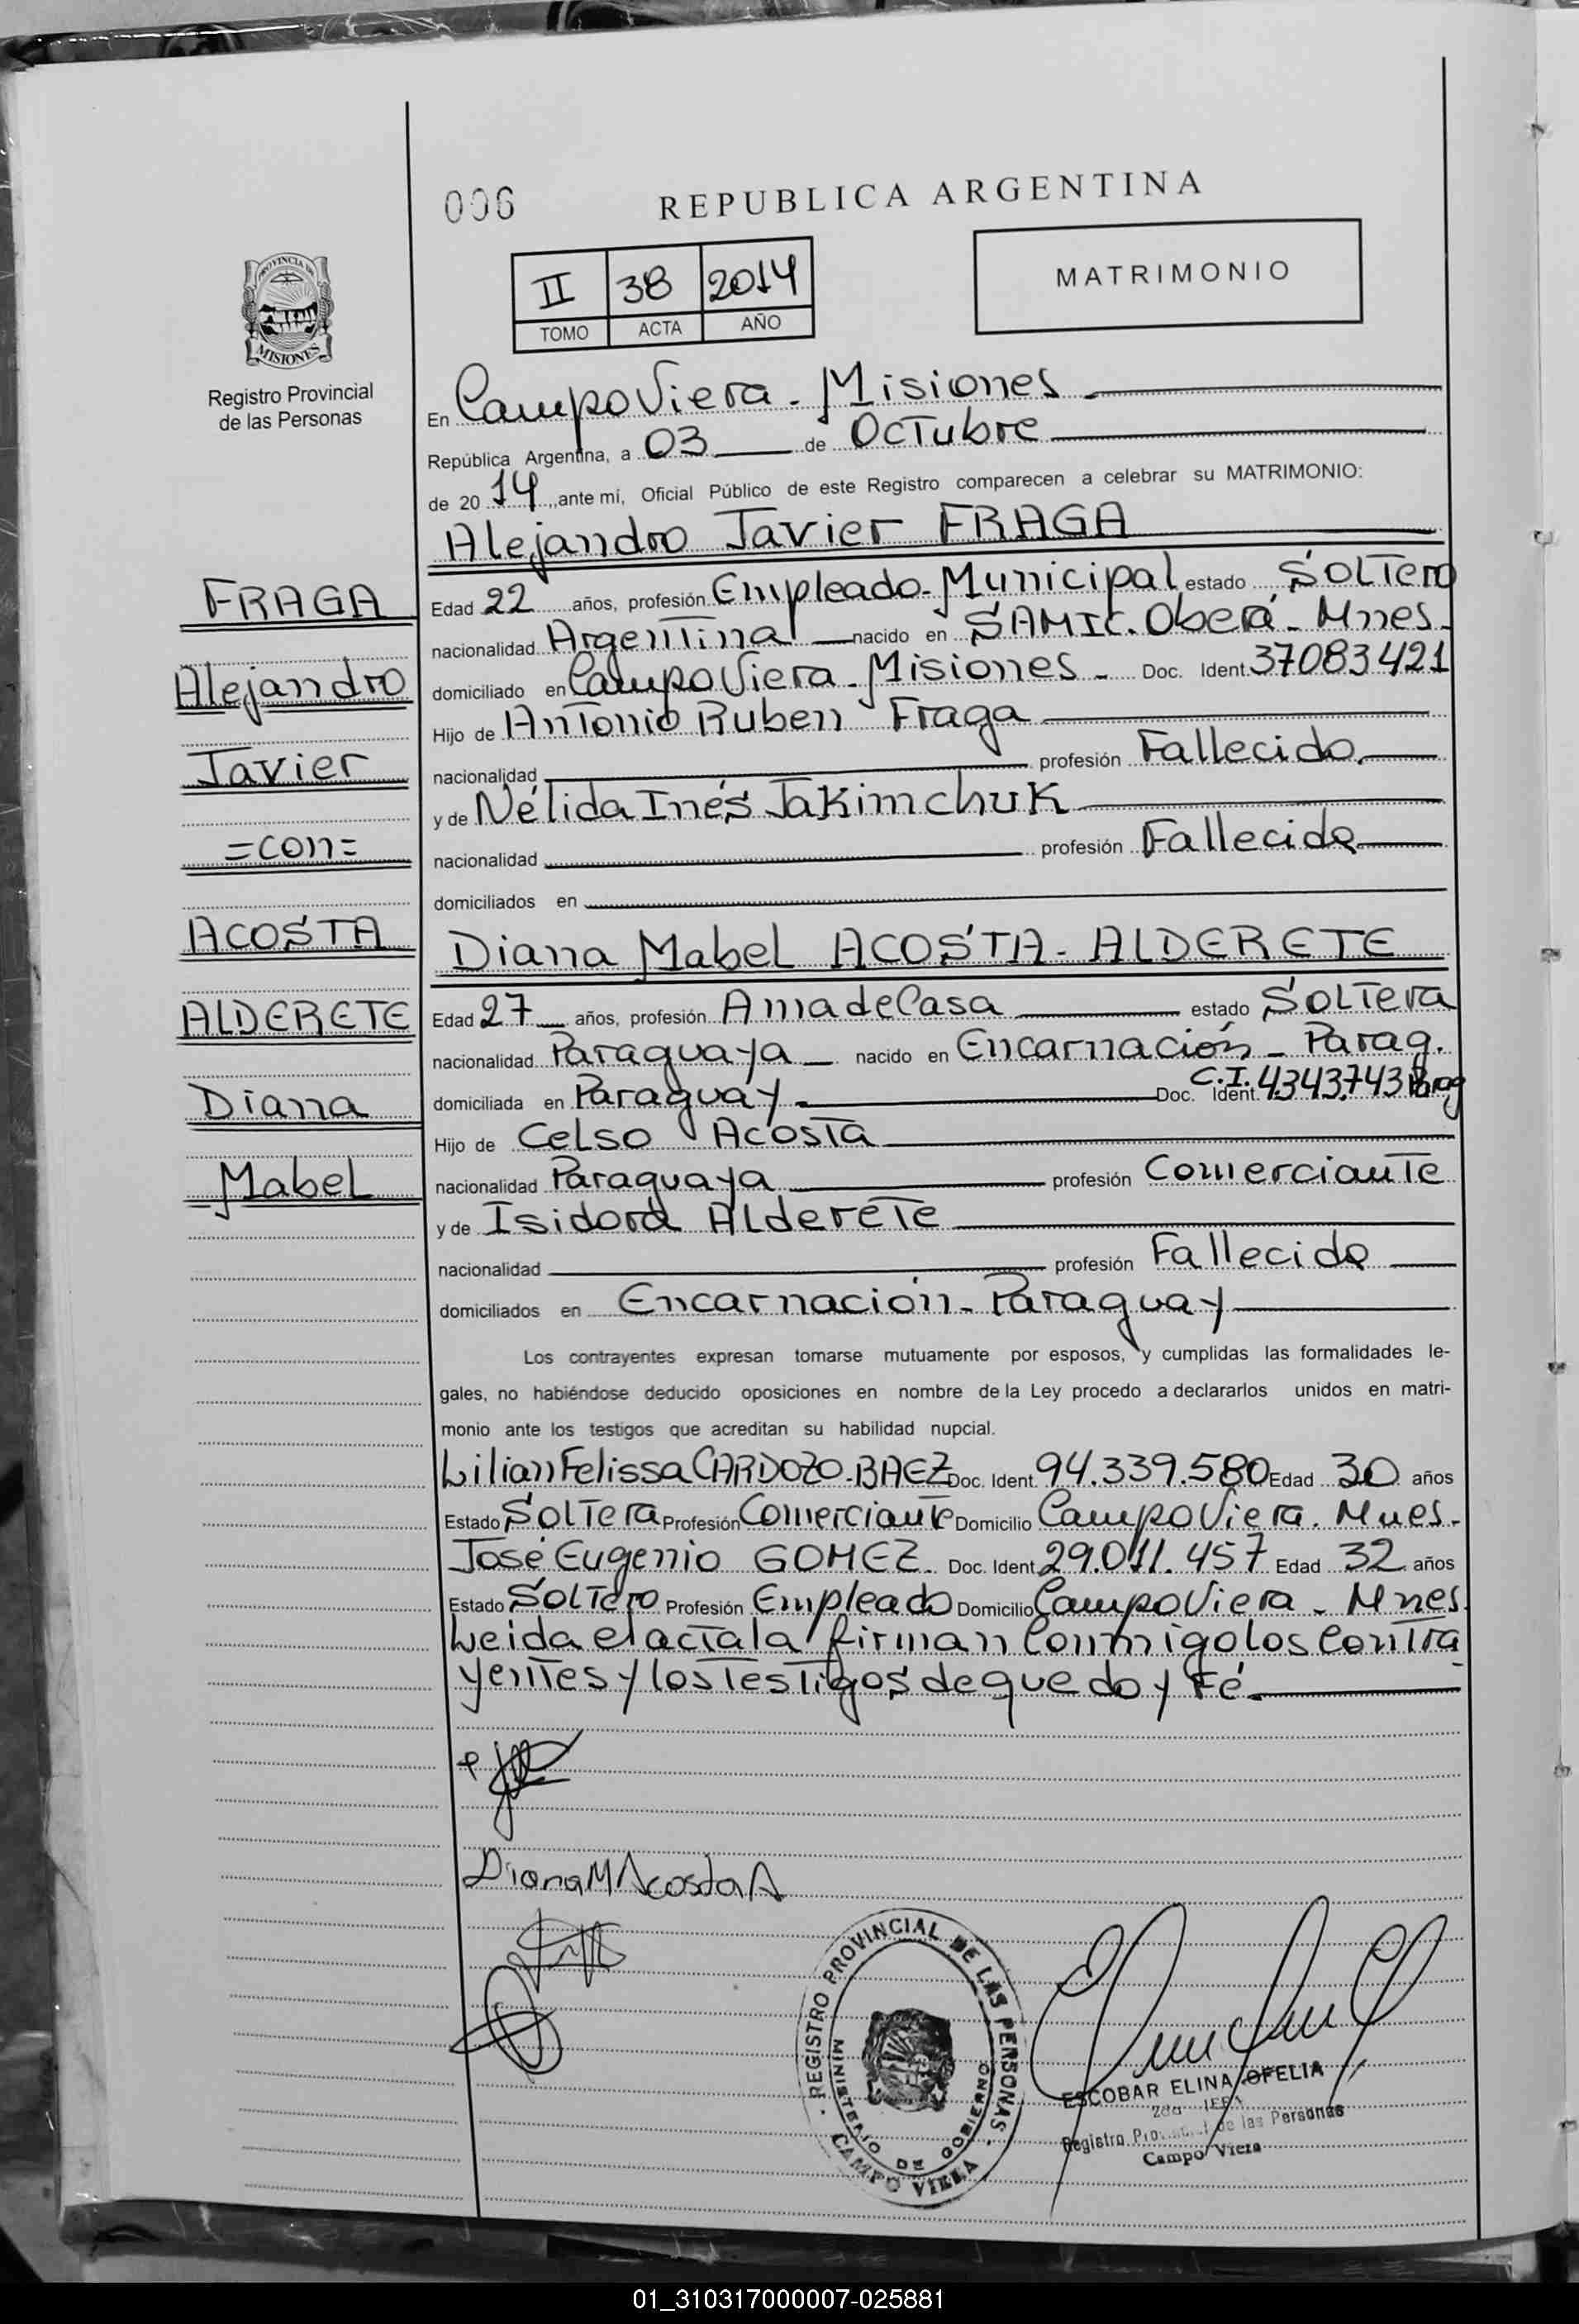 006
REPUBLICA ARGENTINA
II 38 2014
TOMO ACTA AÑO
MATRIMONIO
PROVINCIA DE
MISIONES
Registro Provincial
de las Personas
En Campo Viera - Misiones
República Argentina, a 03 de Octubre
de 20 14, ante mí, Oficial Público de este Registro comparecen a celebrar su MATRIMONIO:
Alejandro Javier FRAGA
Edad 22 años, profesión Empleado Municipal estado Soltero
nacionalidad Argentina nacido en SAMIC. Oberá - Mnes.
domiciliado en Campo Viera - Misiones - Doc. Ident. 37083421
Hijo de Antonio Ruben Fraga
nacionalidad profesión Fallecido
y de Nélida Inés Jakimchuk
nacionalidad profesión Fallecida
domiciliados en
Diana Mabel ACOSTA - ALDERETE
Edad 27 años, profesión Ama de Casa estado Soltera
nacionalidad Paraguaya nacido en Encarnación - Parag.
domiciliada en Paraguay - Doc. Ident. C.I. 4343.743 Parag
Hijo de Celso Acosta
nacionalidad Paraguaya profesión Comerciante
y de Isidora Alderete
nacionalidad profesión Fallecida
domiciliados en Encarnación - Paraguay
Los contrayentes expresan tomarse mutuamente por esposos, y cumplidas las formalidades le-
gales, no habiéndose deducido oposiciones en nombre de la Ley procedo a declararlos unidos en matri-
monio ante los testigos que acreditan su habilidad nupcial.
Lilian Felissa CARDOZO - BAEZ Doc. Ident. 94.339.580 Edad 30 años
Estado Soltera Profesión Comerciante Domicilio Campo Viera. Mnes.
José Eugenio GOMEZ. Doc. Ident. 29.011.457 Edad 32 años
Estado Soltero Profesión Empleado Domicilio Campo Viera - Mnes.
Leida el acta la firman conmigo los contra
yentes y los testigos de que doy Fé.
FRAGA
Alejandro
Javier
=con=
ACOSTA
ALDERETE
Diana
Mabel
Diana M Acosta A
REGISTRO PROVINCIAL DE LAS PERSONAS
MINISTERIO DE GOBIERNO
CAMPO VIERA
ESCOBAR ELINA OFELIA
2da JEFA
Registro Provincial de las Personas
Campo Viera
01_310317000007-025881